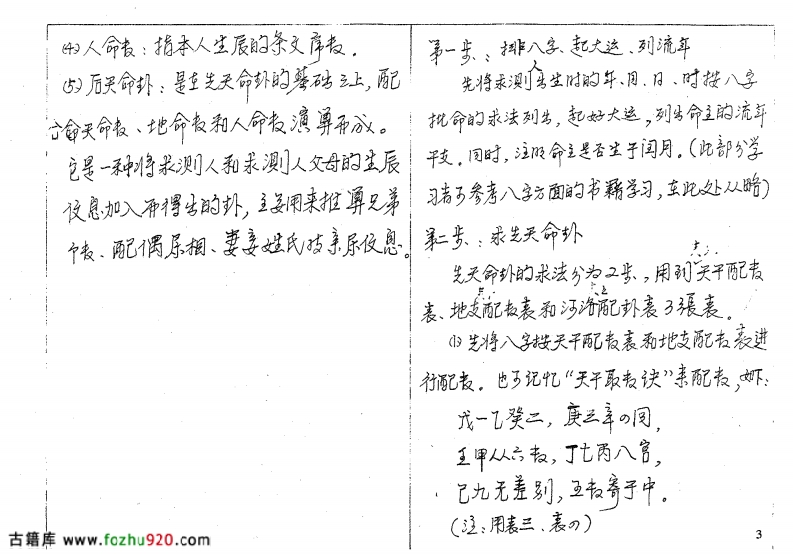 (4) 人命数：指本人生辰的条文序数。
(5) 后天命卦：是在先天命卦的基础之上，配
合命天命数、地命数和人命数演算而成。
它是一种将求测人和求测人父母的生辰
信息加入而得出的卦，主要用来推算兄弟
个数、配偶属相、妻妾姓氏及亲属信息。
第一步：排八字、起大运、列流年
先将求测人出生时的年、月、日、时按八字
批命的求法列出，起好大运，列出命主的流年
干支。同时，注明命主是否生于闰月。(此部分学
习者可参考八字方面的书籍学习，在此处从略)
第二步：求先天命卦
先天命卦的求法分为2步，用到天干配数
表、地支配数表和河洛配卦表3張表。
(1) 先将八字按天干配数表和地支配数表进
行配数。也可记忆“天干取数诀”来配数，如下：
戊一乙癸二，庚三辛四同，
壬甲从六数，丁七丙八宫，
己九无差别，五数寄于中。
(注：用表三、表四)
3
古籍库 www.fozhu920.com